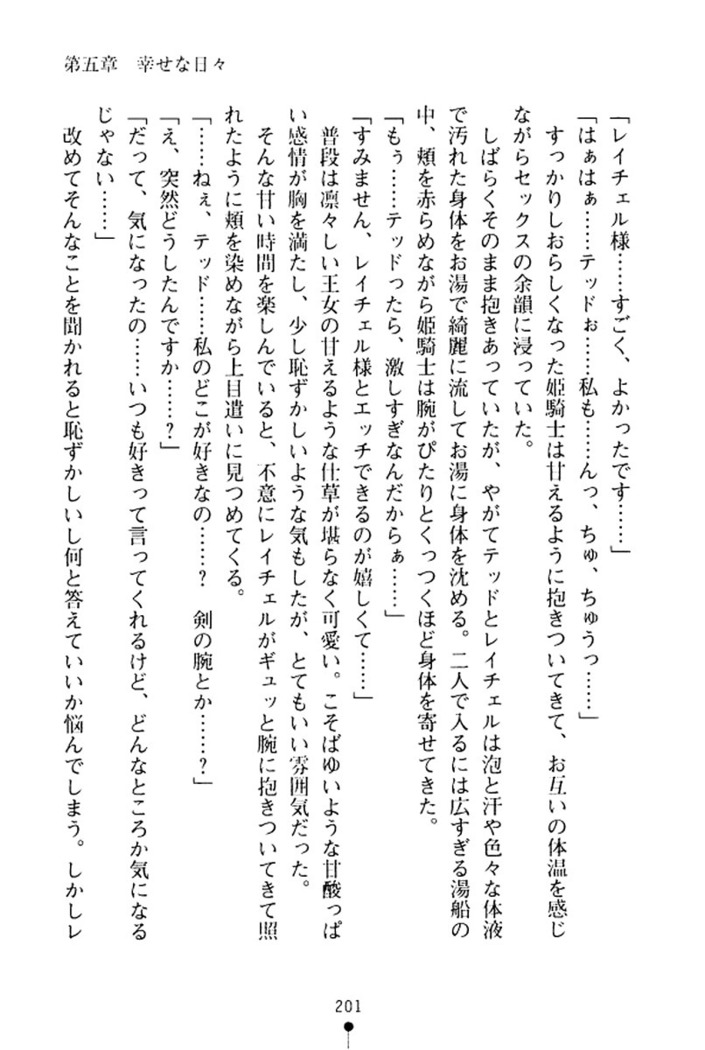 第五章　幸せな日々
「レイチェル様……すごく、よかったです……」
「はぁはぁ……テッドぉ……私も……んっ、ちゅ、ちゅうっ……」
　すっかりしおらしくなった姫騎士は甘えるように抱きついてきて、お互いの体温を感じ
ながらセックスの余韻に浸っていた。
　しばらくそのまま抱きあっていたが、やがてテッドとレイチェルは泡と汗や色々な体液
で汚れた身体をお湯で綺麗に流してお湯に身体を沈める。二人で入るには広すぎる湯船の
中、頬を赤らめながら姫騎士は腕がぴたりとくっつくほど身体を寄せてきた。
「もぅ……テッドったら、激しすぎなんだからぁ……」
「すみません、レイチェル様とエッチできるのが嬉しくて……」
　普段は凛々しい王女の甘えるような仕草が堪らなく可愛い。こそばゆいような甘酸っぱ
い感情が胸を満たし、少し恥ずかしいような気もしたが、とてもいい雰囲気だった。
　そんな甘い時間を楽しんでいると、不意にレイチェルがギュッと腕に抱きついてきて照
れたように頬を染めながら上目遣いに見つめてくる。
「……ねぇ、テッド……私のどこが好きなの……？　剣の腕とか……？」
「え、突然どうしたんですか……？」
「だって、気になったの……いつも好きって言ってくれるけど、どんなところか気になる
じゃない……」
　改めてそんなことを聞かれると恥ずかしいし何と答えていいか悩んでしまう。しかしレ
201